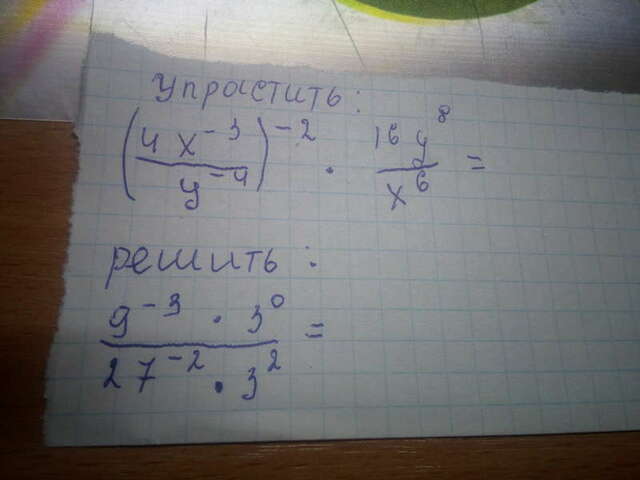 упростить:
(4x⁻³/y⁻⁴)⁻² · 16y⁸/x⁶ =
решить:
9⁻³ · 3⁰ / 27⁻² · 3² =